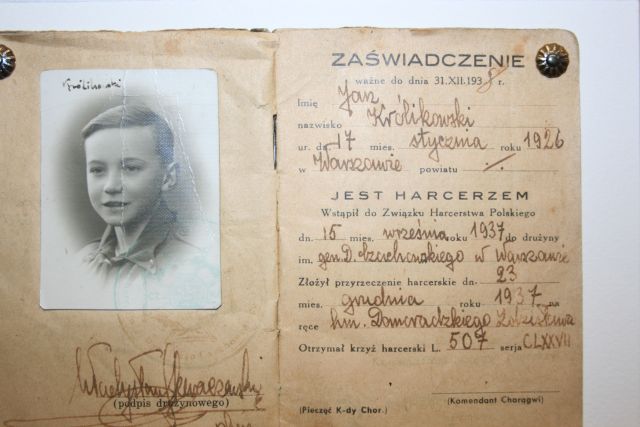 Królikowski
(podpis drużynowego)
ZAŚWIADCZENIE
ważne do dnia 31.XII.1938 r.
Imię Jan
nazwisko Królikowski
ur. dn. 17 mies. stycznia roku 1926
w Warszawie powiatu
JEST HARCERZEM
Wstąpił do Związku Harcerstwa Polskiego
dn. 15 mies. września roku 1937 do drużyny
im. gen. D. w Warszawie
Złożył przyrzeczenie harcerskie dn. 23
mies. grudnia roku 1937 na
ręce hm. Domoradzkiego
Otrzymał krzyż harcerski L. 507 serja CLXXVII
(Komendant Chorągwi)
(Pieczęć K-dy Chor.)